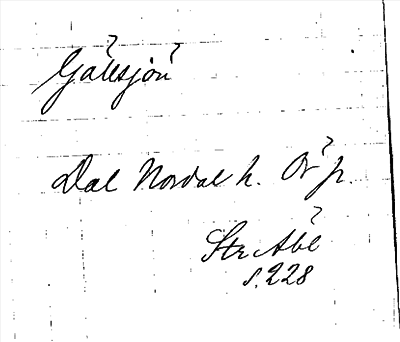 Gällsjön
Dal Nordal h. Ör p.
s. 228